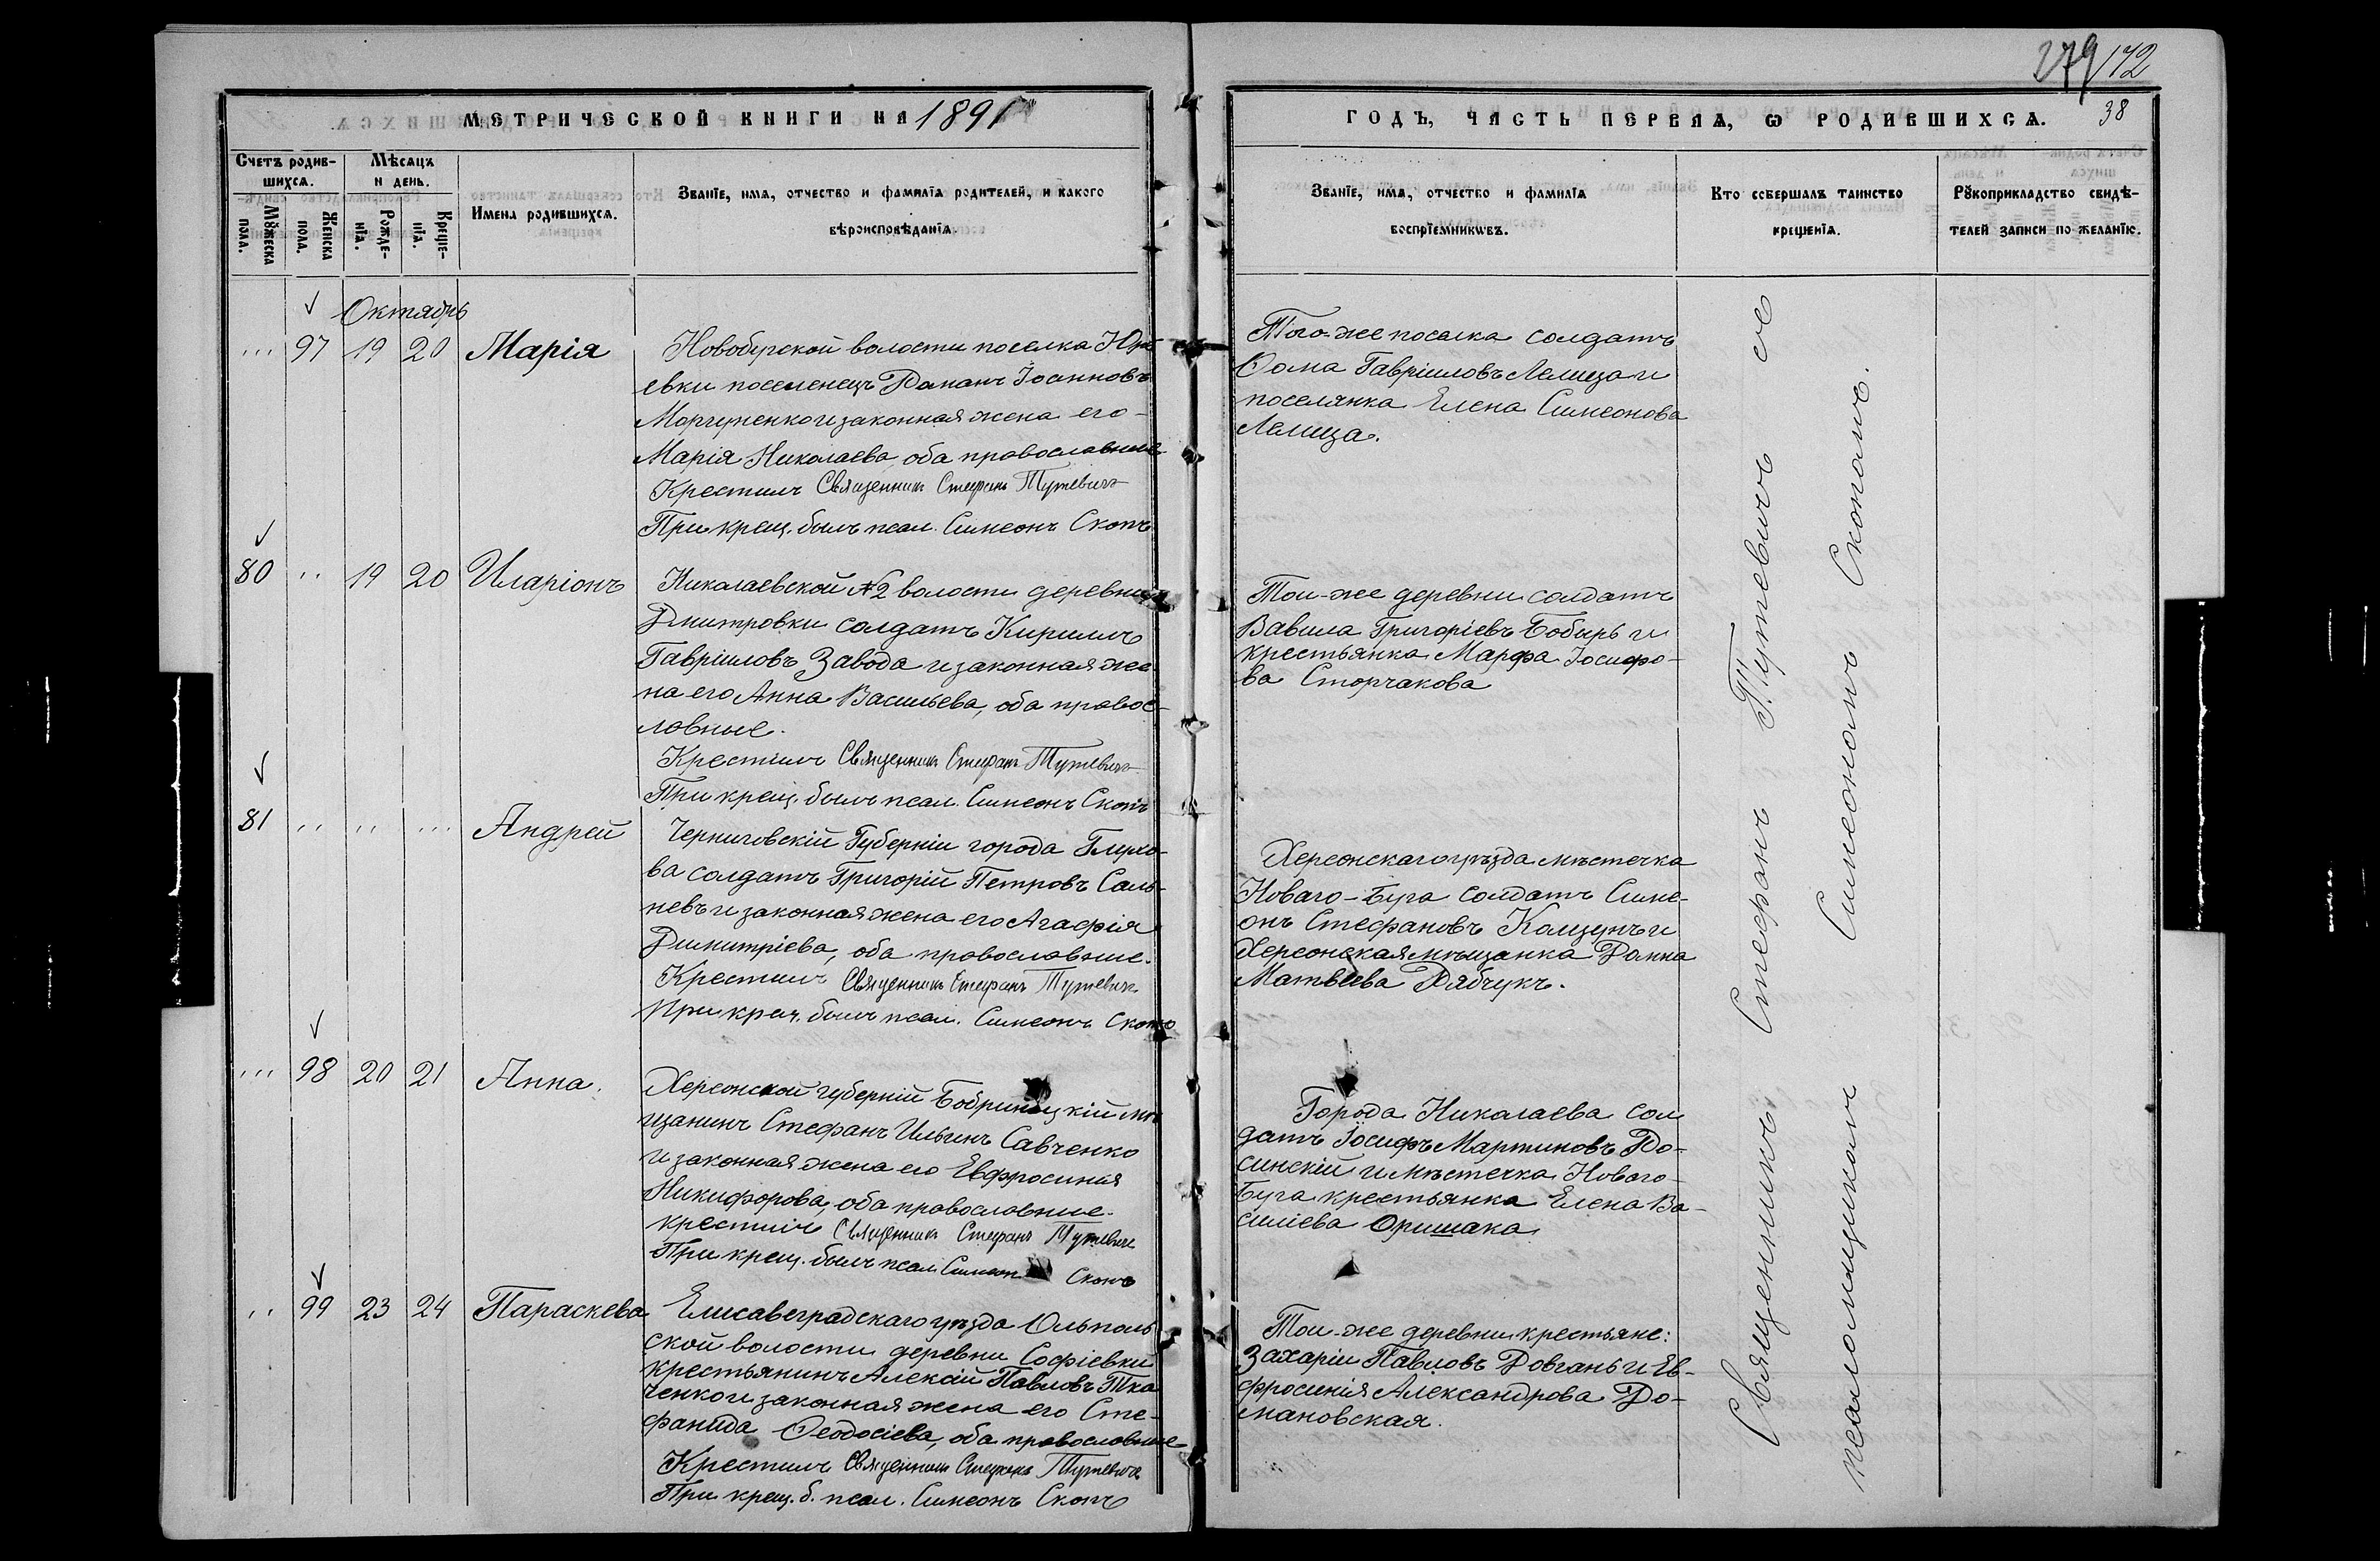 279 172
МЕТРИЧЕСКОЙ КНИГИ НА 1891
ГОДЪ, ЧАСТЬ ПЕРВАЯ, Ѡ РОДИВШИХСѦ. 38
Счетъ родив-
шихсѧ.
Мѣсяцъ
и день.
Мꙋжеска
пола.
Женска
пола.
Рожде-
нїѧ.
Креще-
нїѧ.
Имена родившихсѧ.
Званїе, имѧ, отчество и фамилїѧ родителей, и какого
вѣроисповѣданїѧ.
Званїе, имѧ, отчество и фамилїѧ
воспрїемникѡвъ.
Кто совершалъ таинство
крещенїѧ.
Рꙋкоприкладство свидѣ-
телей записи по желанїю.
Октябрь
97 19 20 Марія
Новобугской волости поселка Юрь-
евки поселенецъ Романъ Іоанновъ
и законная жена его
Марія Николаева, оба православные
Крестилъ Священникъ Стефанъ Путевичъ
При крещ. былъ псал. Симеонъ Скопъ
Того-же поселка солдатъ
Ѳома Гавріиловъ Лемеза и
поселянка Елена Симеонова
Лемеза.
80 19 20 Иларіонъ
Николаевской №2 волости деревни
Дмитровки солдатъ Кириллъ
Гавріиловъ Завода и законная же-
на его Анна Васильева, оба правос-
лавные.
Крестилъ Священникъ Стефанъ Путевичъ
При крещ. былъ псал. Симеонъ Скопъ
Той-же деревни солдатъ
Вавила Григоріевъ Бобырь и
крестьянка Марфа Іосифо-
ва Сторчакова
81 Андрей
Черниговскій Губерніи города Глухо-
ва солдатъ Григорій Петровъ Саль-
невъ и законная жена его Агафія
Димитріева, оба православные.
Крестилъ Священникъ Стефанъ Путевичъ
При крещ. былъ псал. Симеонъ Скопъ
Херсонскаго уѣзда мѣстечка
Новаго-Буга солдатъ Симе-
онъ Стефановъ Колзунъ и
Херсонская мѣщанка Домна
Матвѣева Рябчукъ.
98 20 21 Анна.
Херсонской губерній Бобринецкій мѣ-
щанинъ Стефанъ Ильинъ Савченко
и законная жена его Евфросинія
Никифорова, оба православные.
крестилъ Священникъ Стефанъ Путевичъ
При крещ. былъ псал. Симеонъ Скопъ
Города Николаева сол-
датъ Іосифъ Мартиновъ Ро-
синскій и мѣстечка Новаго-
Буга крестьянка Елена Ва-
силіева Оришака
99 23 24 Параскева
Елисаветрадскаго уѣзда Ольполь-
ской волости деревни Софіевки
крестьянинъ Алексій Павловъ Тка-
ченко и законная жена его Сте-
фанида Ѳеодосіева, оба православные
Крестилъ Священникъ Стефанъ Путевичъ
При крещ. б. псал. Симеонъ Скопъ
Той-же деревни крестьяне:
Захарій Павловъ Довгань и Ев-
фросинія Александрова До-
мановская.
Священникъ Стефанъ Путевичъ съ
псаломщикомъ Симеономъ Скопомъ.